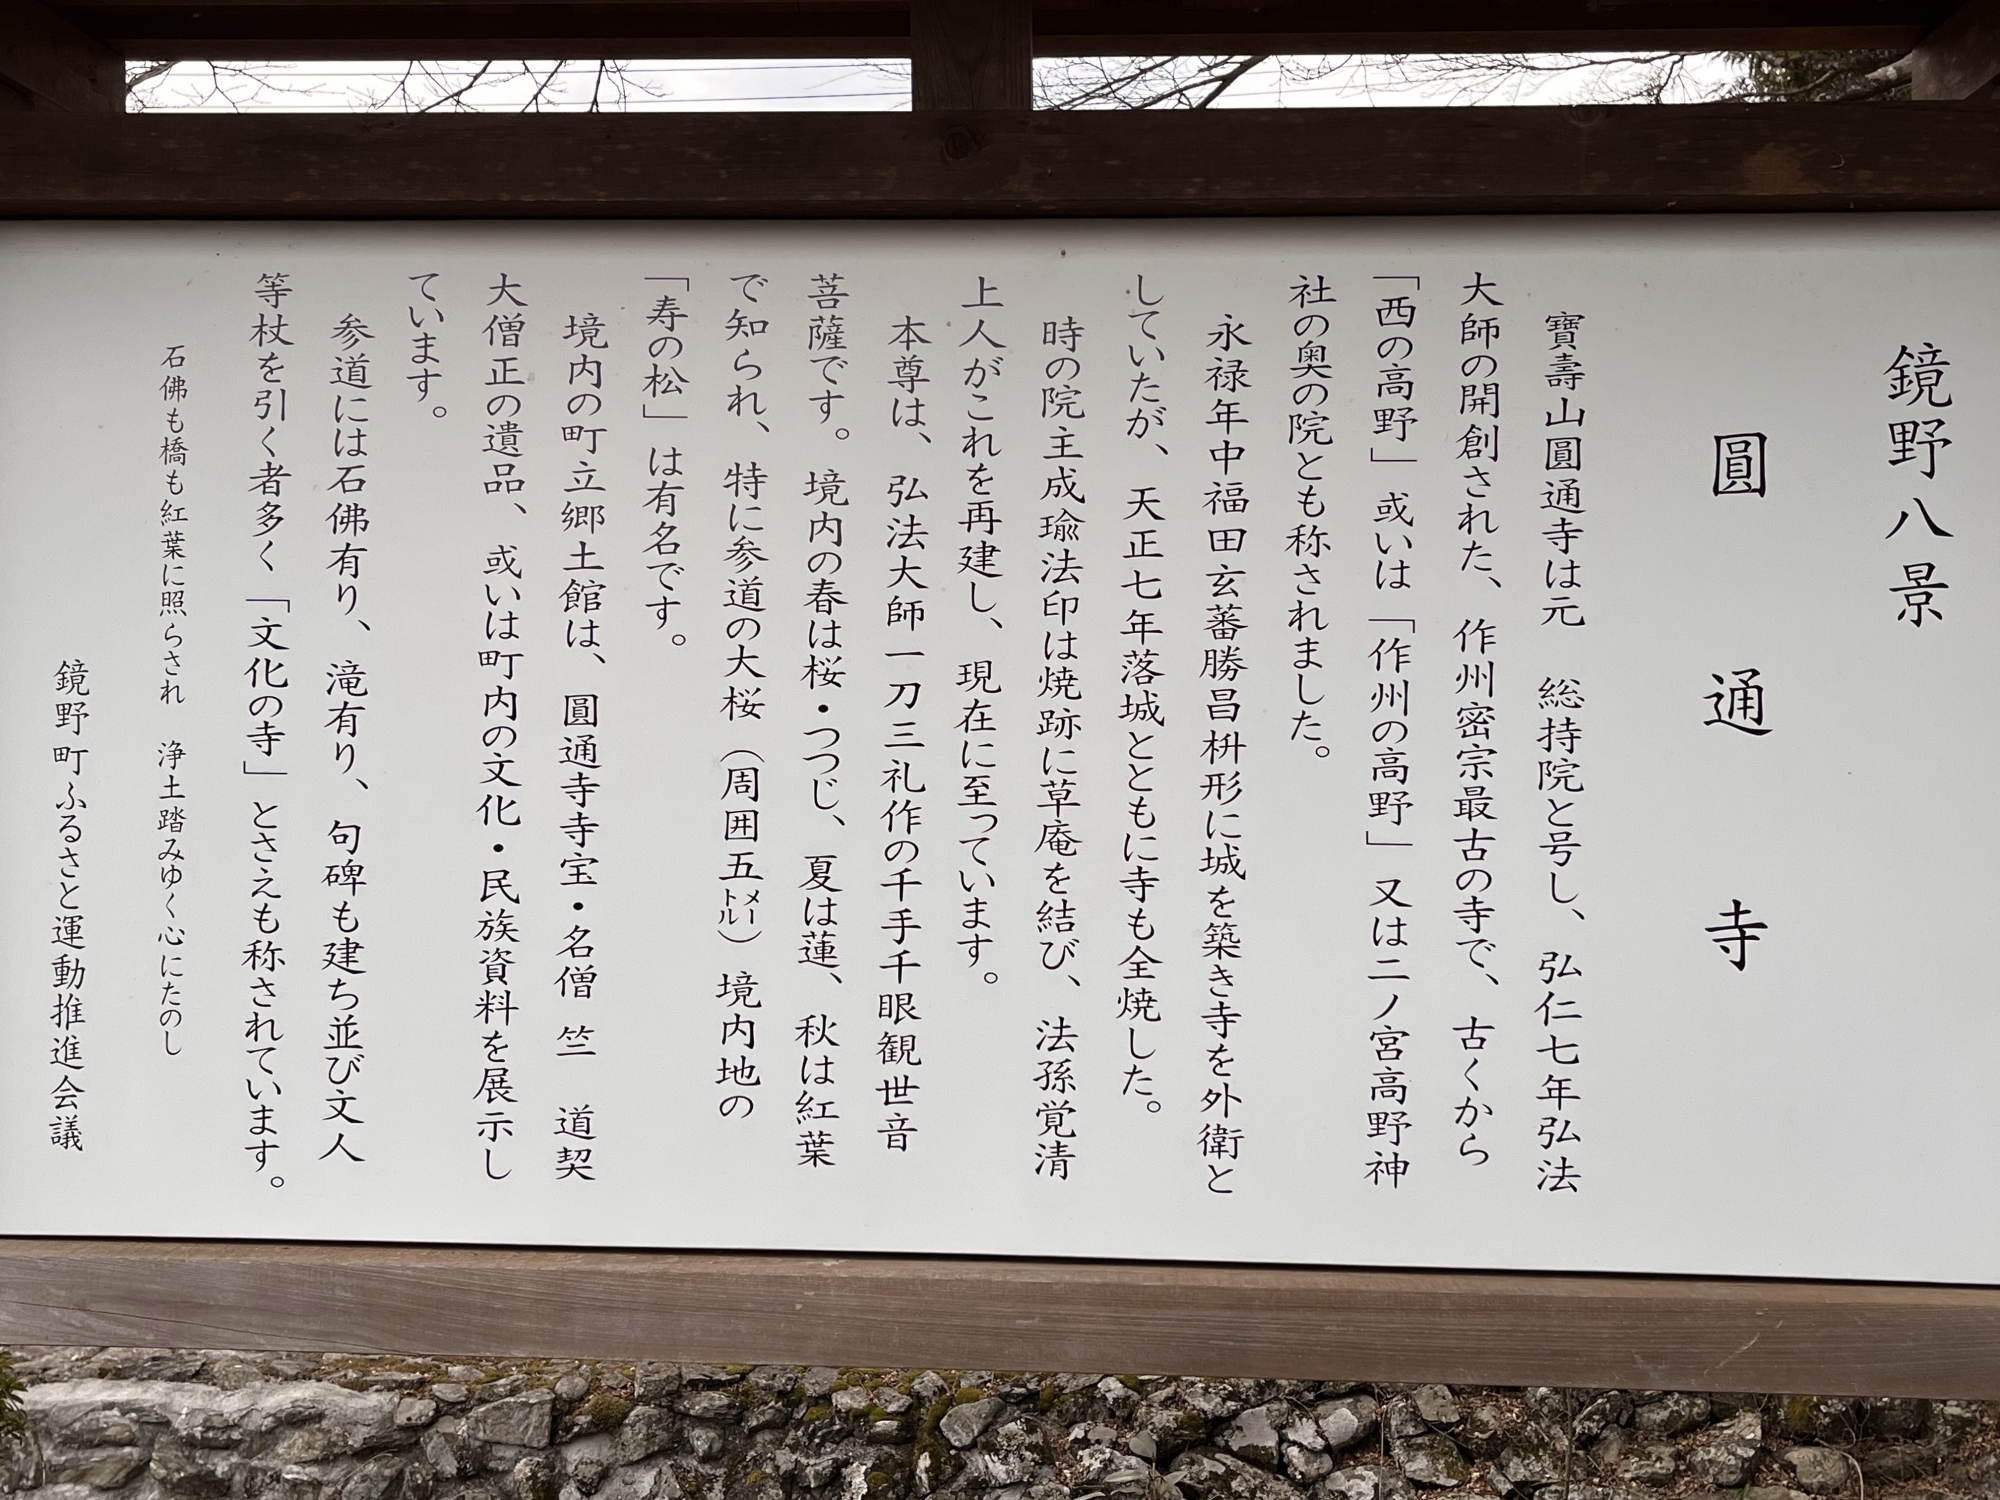 鏡野八景
圓通寺
寶壽山圓通寺は元　総持院と号し、弘仁七年弘法
大師の開創された、作州密宗最古の寺で、古くから
「西の高野」或いは「作州の高野」又は二ノ宮高野神
社の奥の院とも称されました。
永禄年中福田玄蕃勝昌枡形に城を築き寺を外衛と
していたが、天正七年落城とともに寺も全焼した。
時の院主成瑜法印は焼跡に草庵を結び、法孫覚清
上人がこれを再建し、現在に至っています。
本尊は、弘法大師一刀三礼作の千手千眼観世音
菩薩です。境内の春は桜・つつじ、夏は蓮、秋は紅葉
で知られ、特に参道の大桜（周囲五メートル）境内地の
「寿の松」は有名です。
境内の町立郷土館は、圓通寺寺宝・名僧　竺　道契
大僧正の遺品、或いは町内の文化・民族資料を展示し
ています。
参道には石佛有り、滝有り、句碑も建ち並び文人
等杖を引く者多く「文化の寺」とさえも称されています。
石佛も橋も紅葉に照らされ　浄土踏みゆく心にたのし
鏡野町ふるさと運動推進会議